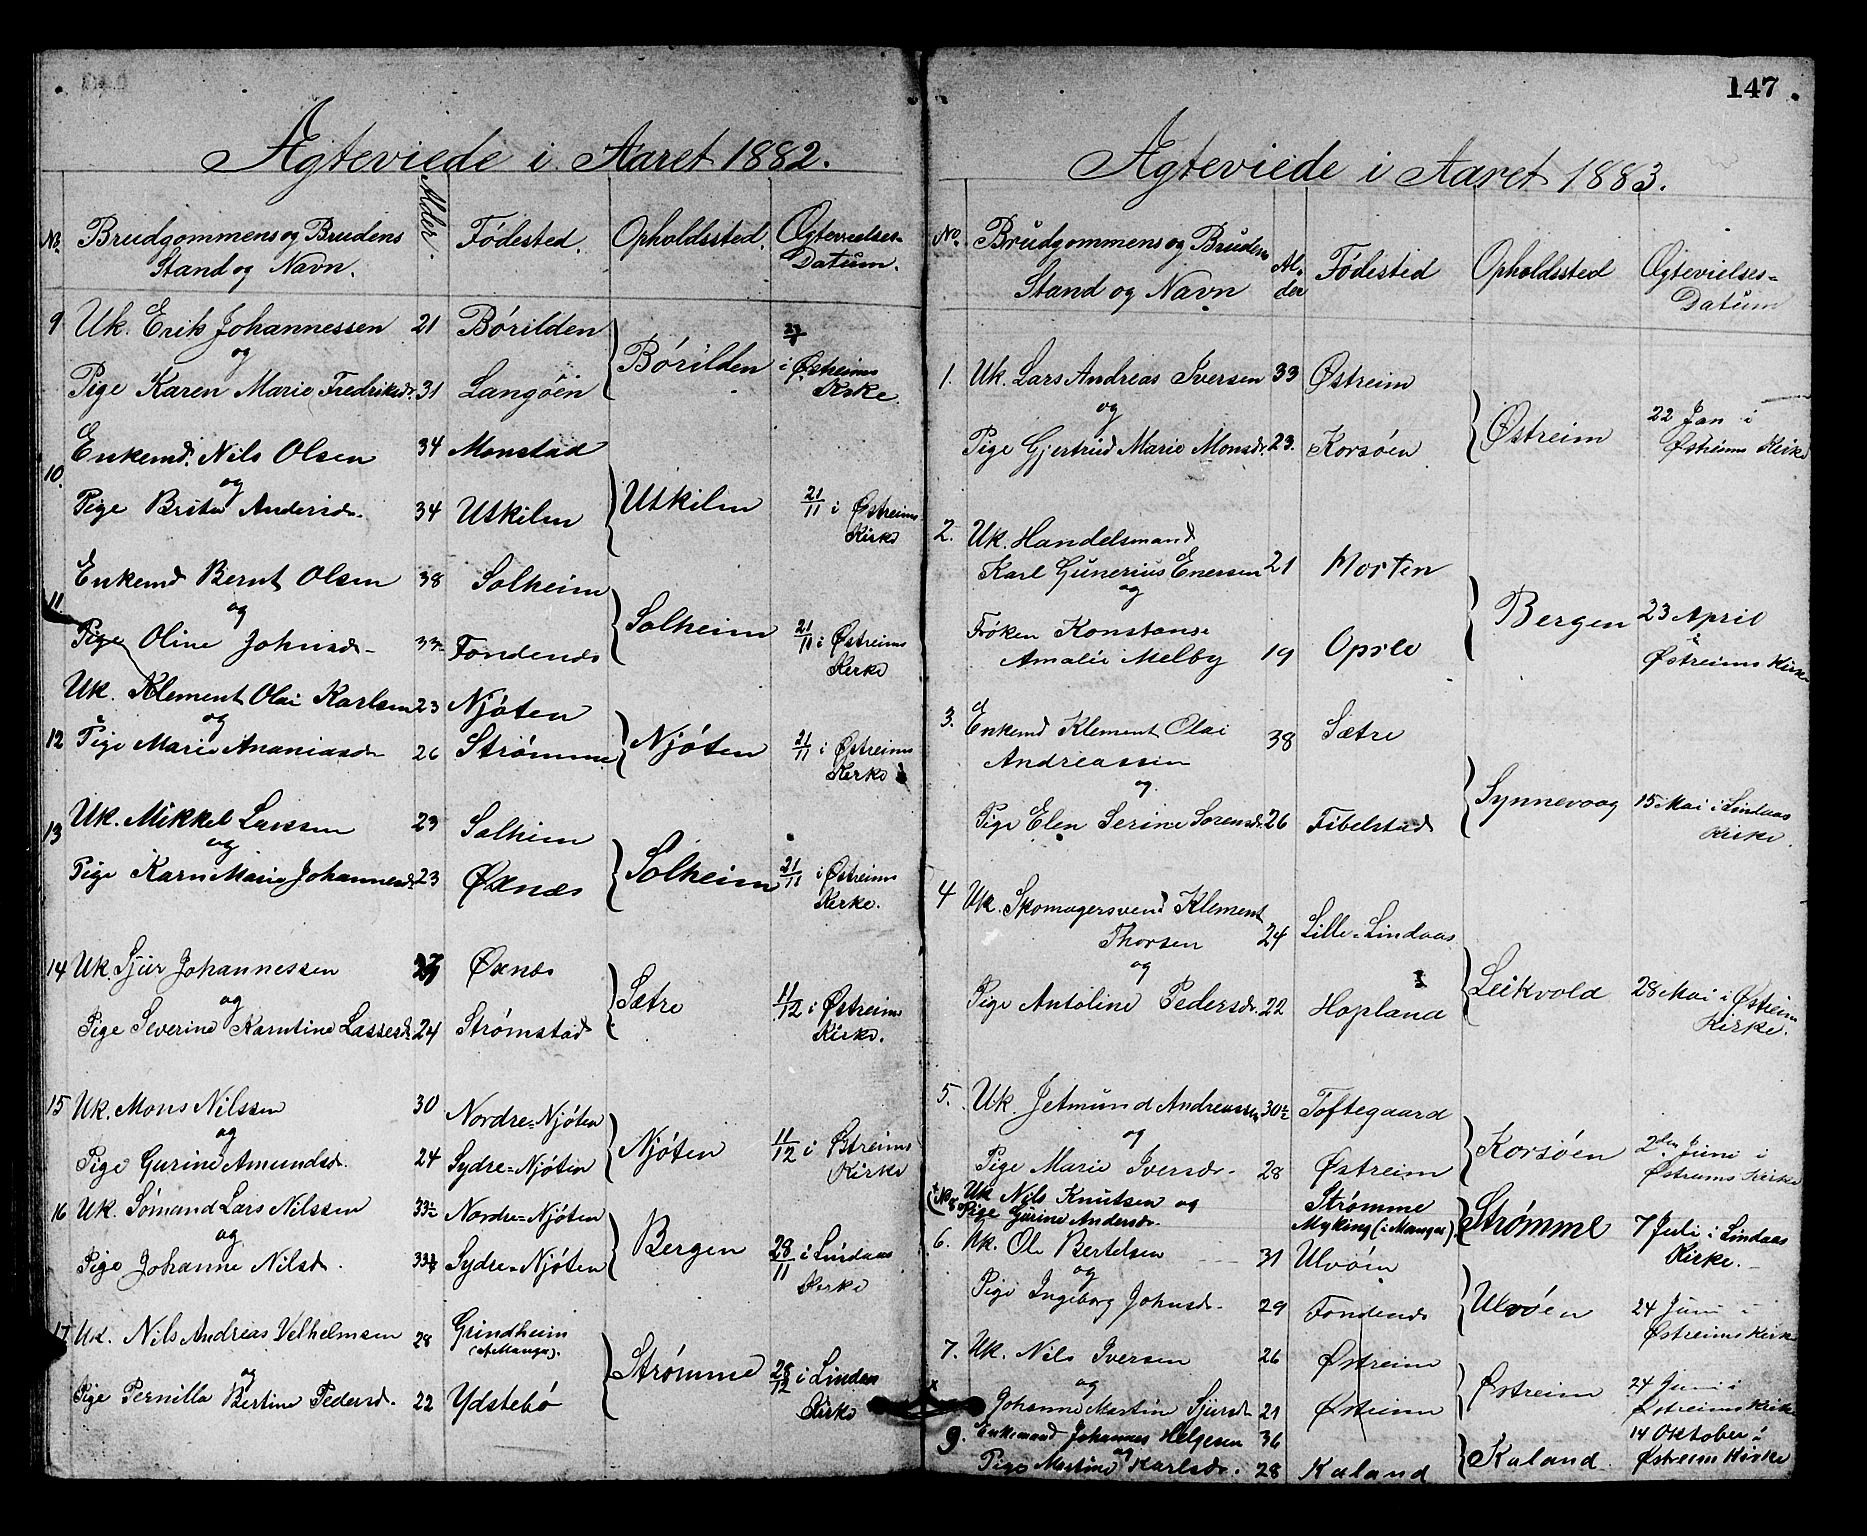 Ægteviede i Aaret 1882.
No. Brudgommens og Brudens Stand og Navn. Alder. Fødested. Opholdssted. Ægtevielses-Datum.
9 Uk. Erik Johannessen 21 Börilden
og Börilden i Østreims Kirke
Pige Karen Marie Fredriksd. 31 Langöen
10. Enkemd. Nils Olsen 34 Monstad
og Utkilen 21/11 i Østreims Kirke
Pige Brita Andersd. 34 Utkilen
11. Enkemd Bernt Olsen 38 Solheim
og Solheim 21/11 i Østreims Kirke
Pige Oline Johnsd. 33 Fondenes
12 Uk. Klement Olai Karlsen 23 Njöten
og Njöten 21/11 i Østreims Kirke
Pige Marie Ananiasd. 26 Strömme
13 Uk. Mikkel Larssen 23 Solheim
og Solheim 21/11 i Østreims Kirke.
Pige Karn Marie Johannesd. 23 Øxnæs
14 Uk. Sjur Johannessen 27 Øxnæs
og Sætre 11/12 i Østreims Kirke.
Pige Severine Karntine Lassesd. 24 Strømstad
15 Uk. Mons Nilssen 30 Nordre-Njöten
og Njöten 11/12 i Østreims Kirke
Pige Gurine Amundsd. 24 Sydre-Njöten
16 Uk. Sömand Lars Nilssen 33½ Nordre-Njöten
og Bergen 28/11 i Lindaas Kirke
Pige Johanne Nilsd. Sydre-Njöten
17 Uk. Nils Andreas Velhelmsen 28 Grindheim
(af Manger).
og Strømme 28/12 i Lindaas Kirke
Pige Pernilla Bertine Pedersd. 22 Ydstebö
147
Ægteviede i Aaret 1883.
No. Brudgommens og Brudens Stand og Navn Alder Fødested Opholdssted Ægtevielses-Datum
1. Uk. Lars Andreas Iversen 33 Østreim
og Østreim 22 Jan i Østreims Kirke
Pige Gjertrud Marie Monsd. 23. Korsöen
2. Uk. Handelsmand
Karl Gunerius Enersen 21 Horten
og Bergen 23 April i Østreims Kirke
Frøken Konstanse
Amalie Melby 19 Opslo
3. Enkemd Klement Olai
Andreassen 38 Sætre
og Synnevaag 15 Mai i Lindaas Kirke.
Pige Elen Serine Sorensd. 26 Fibelstad
4 Uk. Skomagersvend Klement
Thorsen 24 Lille-Lindaas
og Leikvold 28 Mai i Østreim Kirke.
Pige Antoline Pedersd. 22 Hopland
5. Uk. Jetmund Andreassen 30½ Toftegaard
og Korsöen 2den Juni i Østreims Kirke
Pige Marie Iversd. 28 Østreim
(No 8 Uk Nils Knutsen og Strømme
Pige Gurine Andersd. Myking (i Manger) Strømme 7 Juli i Lindaas Kirke.
6. Uk. Ole Bertelsen 31 Ulvöen
og Ulvöen 24 Juni i Østreims Kirke
Pige Ingeborg Johnsd. 29 Fondenes
7. Uk. Nils Iversen 26 Østreim
og Østreim 24 Juni i Østreims Kirke
Johanne Martin Sjursd. 21 Østreim
9. Enkemand Johannes Helgesen 36
og Kaland 14 Oktober i Østreim Kirke
Pige Martine Karlsd. 28 Kaland